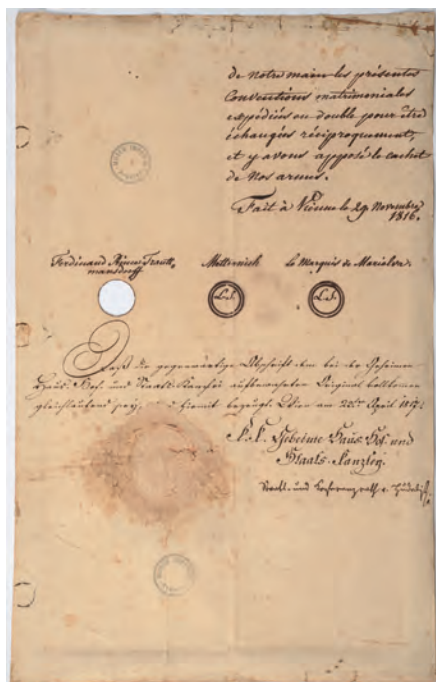 de notre main les présentes
Conventions matrimoniales
expédiées en double pour être
échangées réciproquement,
et y avons apposé le cachet
de nos armes.
Fait à Vienne le 29 Novembre
1816.
Ferdinand Prince Trautt-
mansdorff
Metternich
Le Marquis de Marialva.
L.S.
L.S.
Daß die gegenwärtige Abschrift dem bei der Geheimen
Haus- Hof- und Staats-Kanzlei aufbewahrten Original vollkommen
gleichlautend sey, hiermit bezeugt. Wien am April 1817.
K. K. Geheime Haus- Hof- und
Staats-Kanzley.
Staats- und Konferenzrath v.